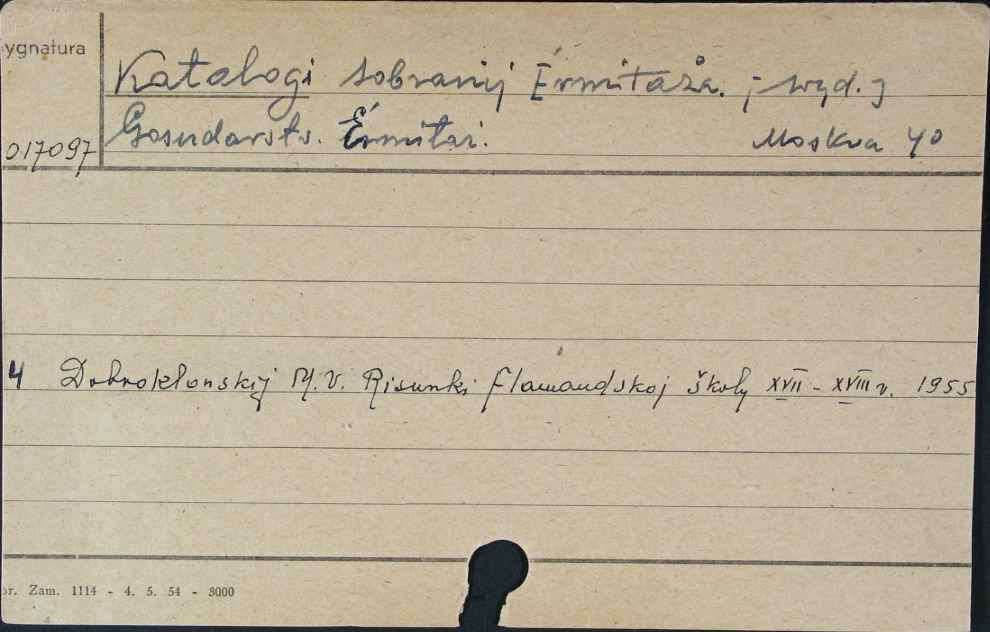 ygnatura
Katalogi sobranij Ėrmitaža. [wyd.]
017097 Gosudarstv. Ėrmitaž. Moskva 40
4 Dobrokłonskij M.V. Risunki flamandskoj školy XVII - XVIII v. 1955
or. Zam. 1114 - 4. 5. 54 - 3000